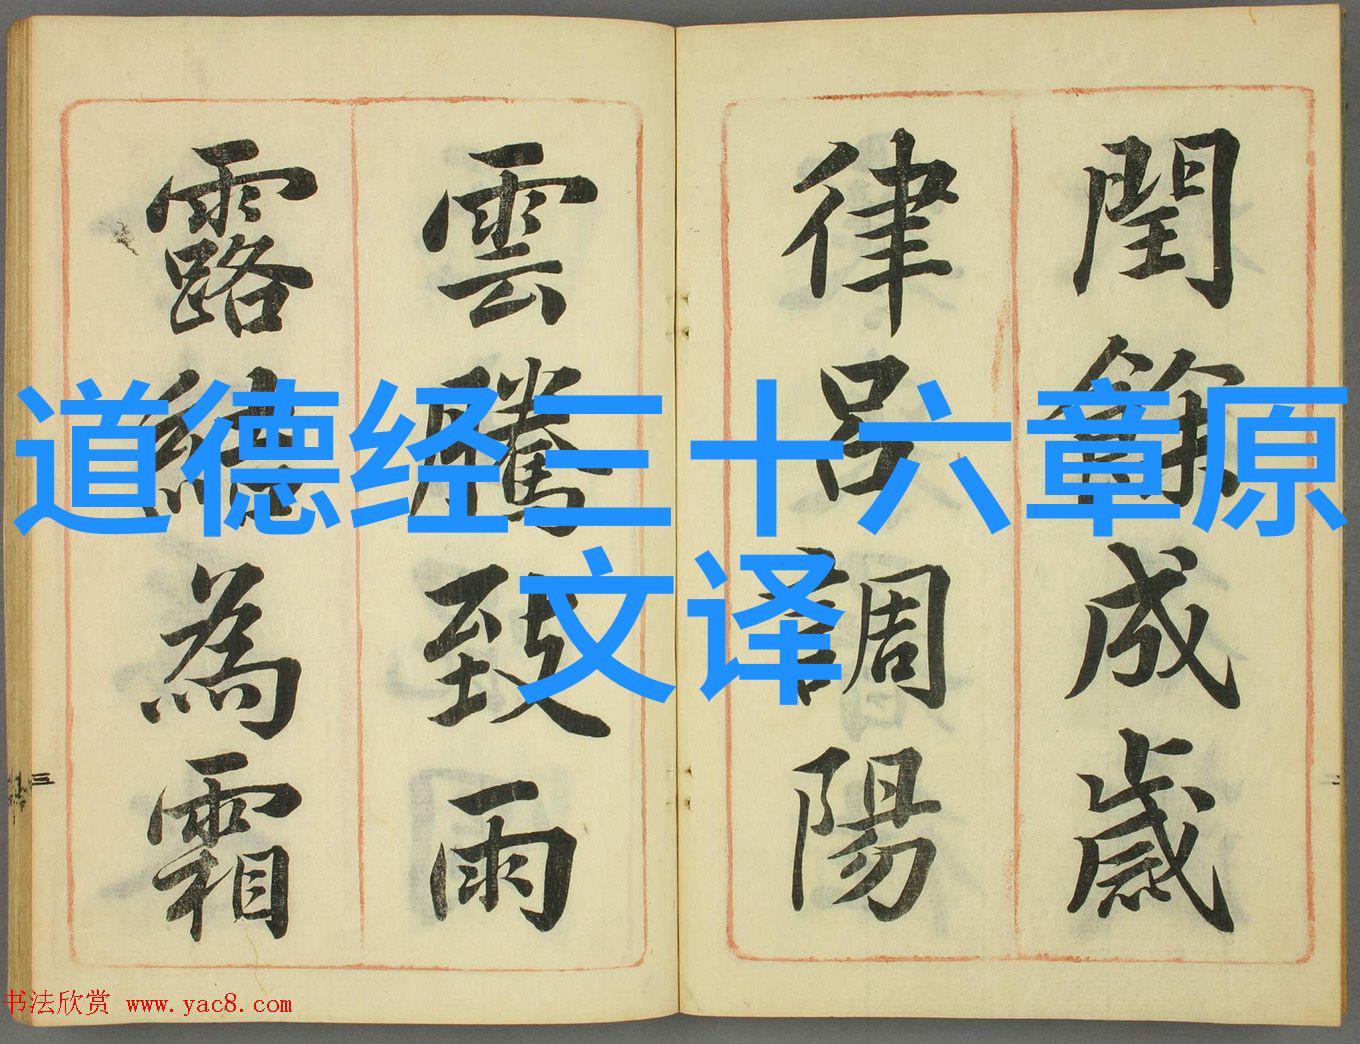 閏餘成歲
律呂調陽
雲騰致雨
露結為霜
道德经三十六章原
文译
三
二
书法欣赏 www.yac8.com